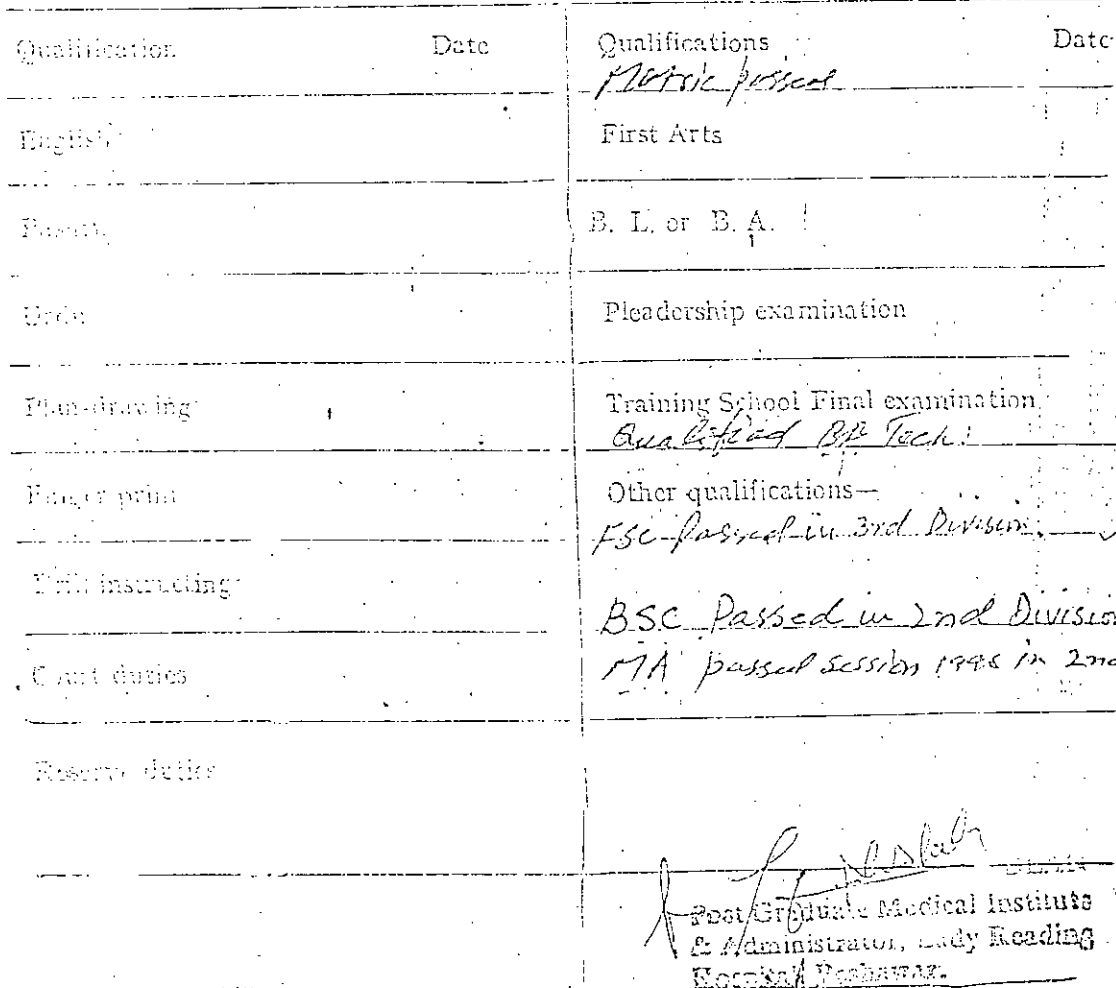 Qualification Date
English
Urdu
Plan-drawing
Finger print
Drill instructing
Court duties
Reserve duties
Qualifications Date
Matric passed
First Arts
B. L. or B. A.
Pleadership examination
Training School Final examination
Qualified Tech:
Other qualifications—
FSC Passed in 3rd Division.
BSC Passed in 2nd Division
MA passed session in 2nd
DEAN
Post Graduate Medical Institute
& Administrator, Lady Reading
Hospital Peshawar.